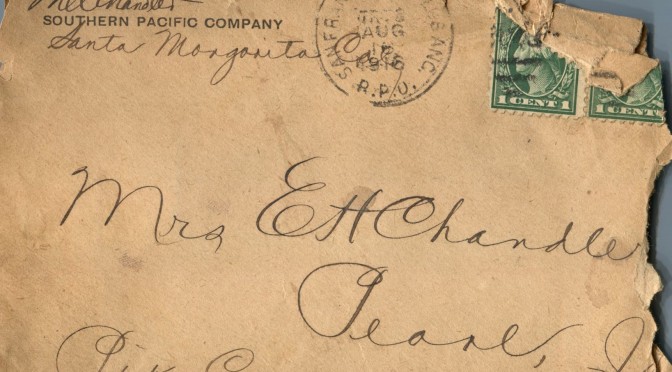 Chandler
SOUTHERN PACIFIC COMPANY
Santa Margarita Ca
SAN FRAN
AUG
18
1916
& SANC.
R.P.O.
1 CENT 1
1 CENT
Mrs EHChandle
Pearl, I